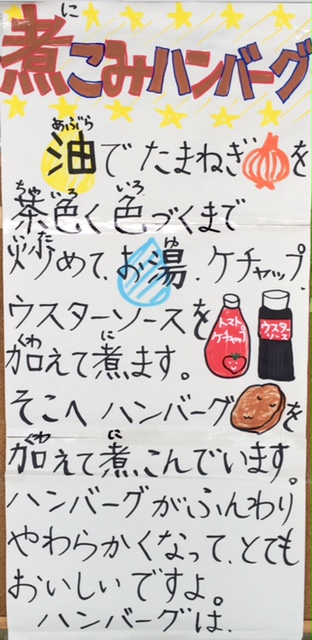 煮こみハンバーグ
油でたまねぎを
茶色く色づくまで
炒めて、お湯、ケチャップ、
ウスターソースを
トマトケチャップ
ウスターソース
加えて煮ます。
そこへハンバーグを
加えて煮こんでいます。
ハンバーグがふんわり
やわらかくなって、とても
おいしいですよ。
ハンバーグは、